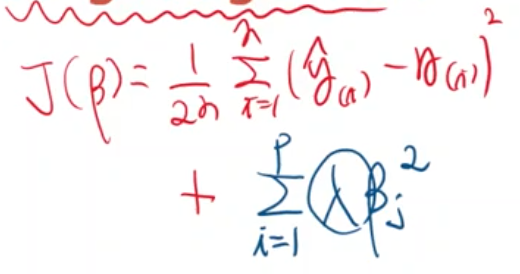 J(β) = 1/2n Σ_{i=1}^{n} (ŷ_(i) - y_(i))²
+ Σ_{i=1}^{p} λβ_j²